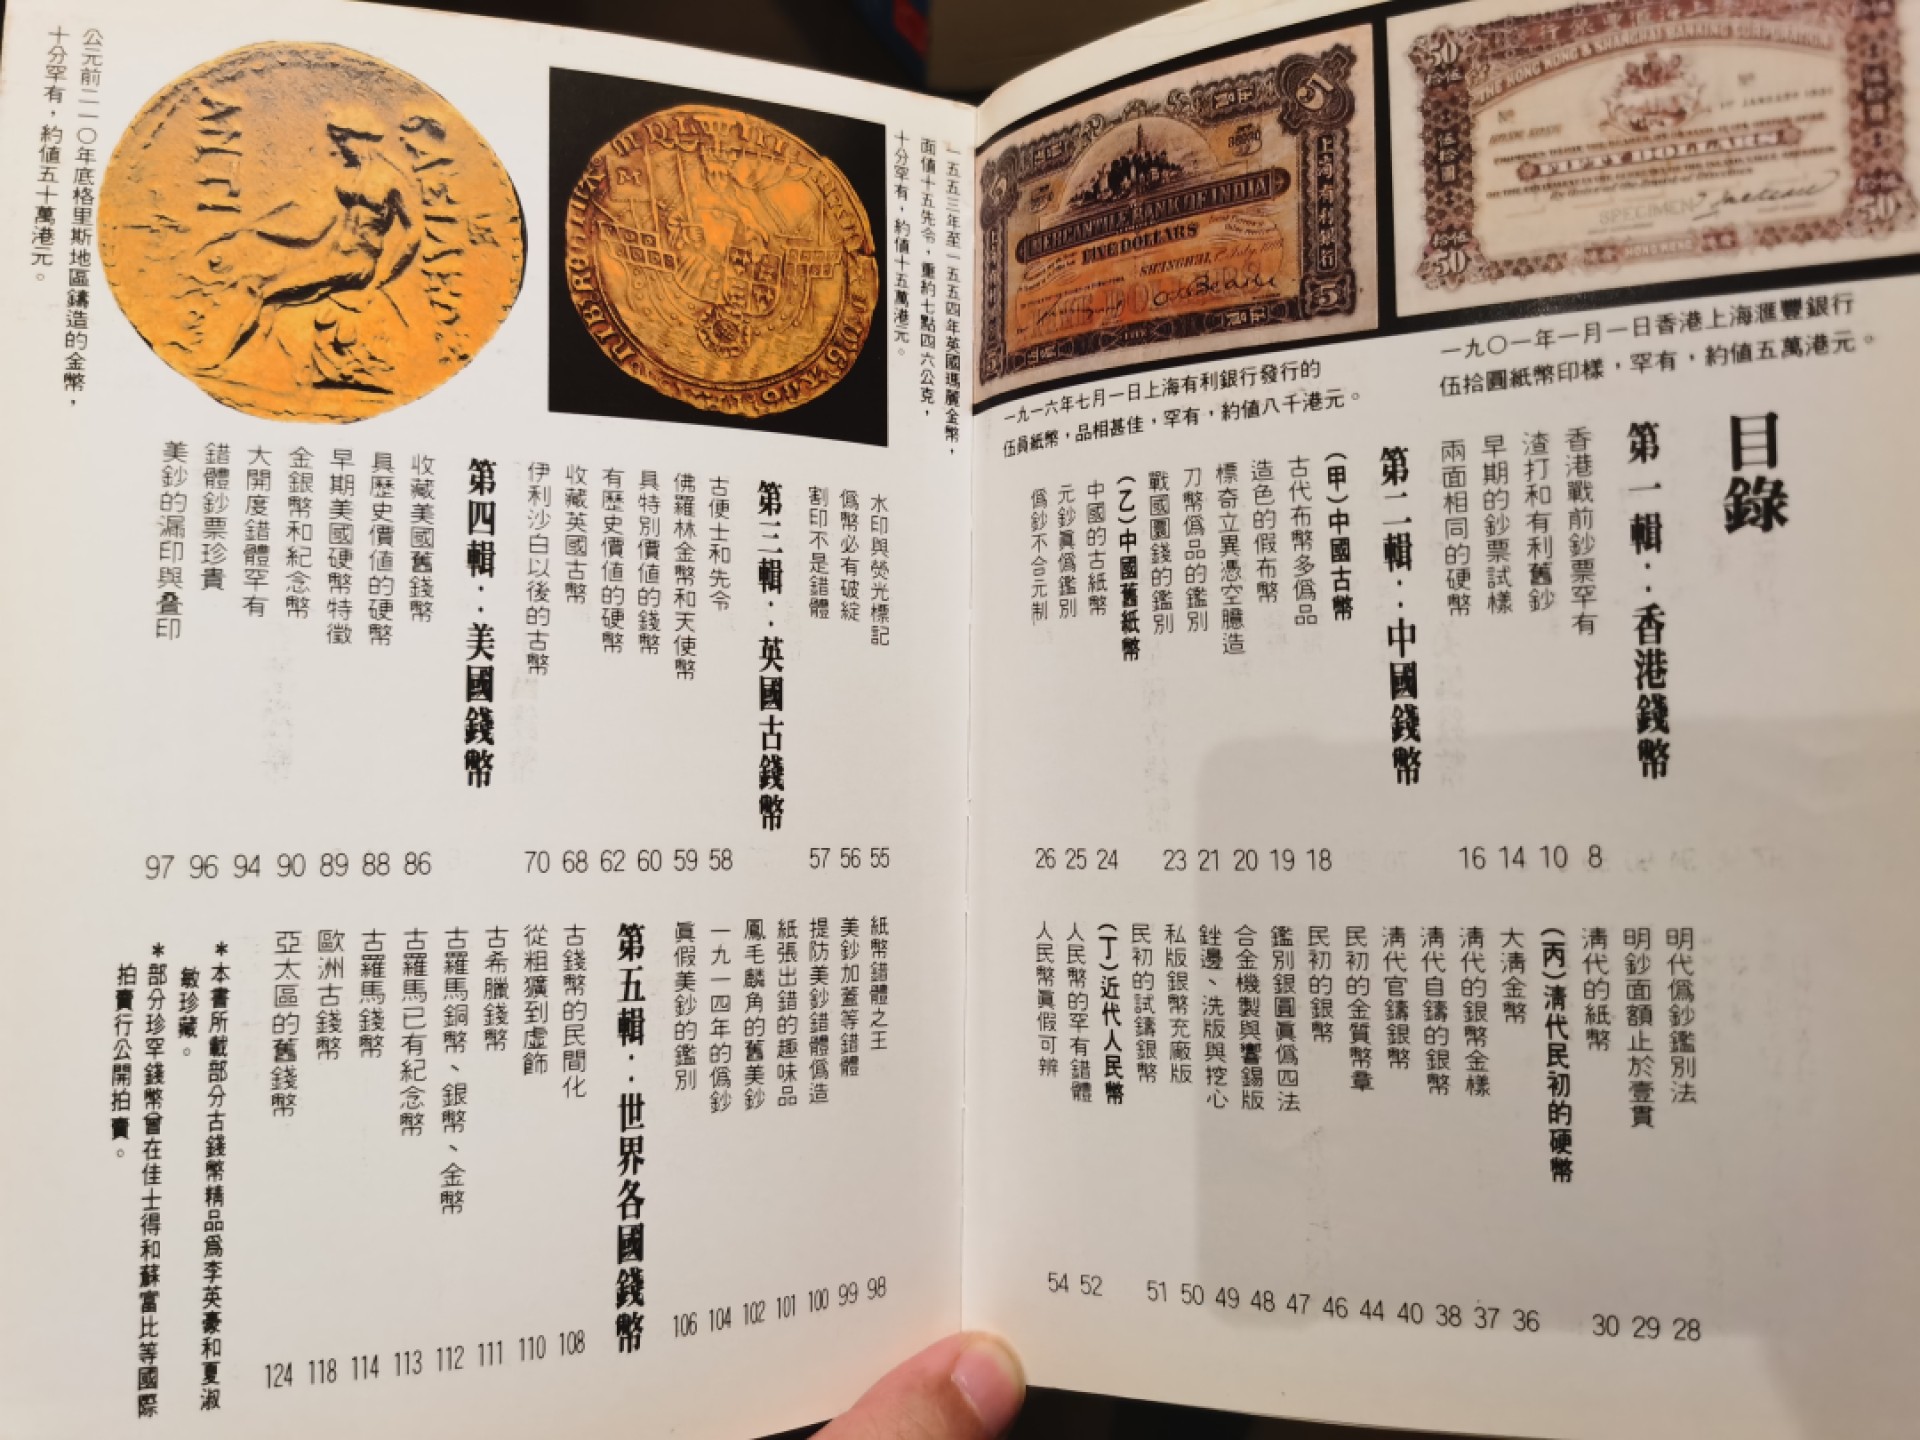 目錄
第一輯：香港錢幣
香港戰前鈔票罕有 8
渣打和有利舊鈔 10
早期的鈔票試樣 14
兩面相同的硬幣 16
第二輯：中國錢幣
(甲)中國古幣
古代布幣多僞品 18
造色的假布幣 19
標奇立異憑空臆造 20
刀幣僞品的鑑別 21
戰國圜錢的鑑別 23
(乙)中國舊紙幣
中國的古紙幣 24
元鈔眞僞鑑別 25
僞鈔不合元制 26
明代僞鈔鑑別法 28
明鈔面額止於壹貫 29
淸代的紙幣 30
(丙)淸代民初的硬幣
大淸金幣 36
淸代的銀幣金樣 37
淸代自鑄的銀幣 38
淸代官鑄銀幣 40
民初的金質幣章 44
民初的銀幣 46
鑑別銀圓眞僞四法 47
合金機製與響錫版 48
銼邊、洗版與挖心 49
私版銀幣充廠版 50
民初的試鑄銀幣 51
(丁)近代人民幣
人民幣的罕有錯體 52
人民幣眞假可辨 54
一九〇一年一月一日香港上海滙豐銀行
伍拾圓紙幣印樣，罕有，約値五萬港元。
一九一六年七月一日上海有利銀行發行的
伍員紙幣，品相甚佳，罕有，約値八千港元。
50
THE HONG KONG & SHANGHAI BANKING CORPORATION
FIFTY DOLLARS
SPECIMEN
HONG KONG
伍拾圓
5
MERCANTILE BANK OF INDIA
FIVE DOLLARS
SHANGHAI
上海有利銀行
一五五三年至一五五四年英國瑪麗金幣，
面値十五先令，重約七點四六公克，
十分罕有，約値十五萬港元。
公元前二一〇年底格里斯地區鑄造的金幣，
十分罕有，約値五十萬港元。
水印與熒光標記 55
僞幣必有破綻 56
割印不是錯體 57
第三輯：英國古錢幣
古便士和先令 58
佛羅林金幣和天使幣 59
具特別價値的錢幣 60
有歷史價値的硬幣 62
收藏英國古幣 68
伊利沙白以後的古幣 70
第四輯：美國錢幣
收藏美國舊錢幣 86
具歷史價値的硬幣 88
早期美國硬幣特徵 89
金銀幣和紀念幣 90
大開度錯體罕有 94
錯體鈔票珍貴 96
美鈔的漏印與叠印 97
紙幣錯體之王 98
美鈔加蓋等錯體 99
提防美鈔錯體僞造 100
紙張出錯的趣味品 101
鳳毛麟角的舊美鈔 102
一九一四年的僞鈔 104
眞假美鈔的鑑別 106
第五輯：世界各國錢幣
古錢幣的民間化 108
從粗獷到虛飾 110
古希臘錢幣 111
古羅馬銅幣、銀幣、金幣 112
古羅馬已有紀念幣 113
古羅馬錢幣 114
歐洲古錢幣 118
亞太區的舊錢幣 124
＊本書所載部分古錢幣精品爲李英豪和夏淑
敏珍藏。
＊部分珍罕錢幣曾在佳士得和蘇富比等國際
拍賣行公開拍賣。